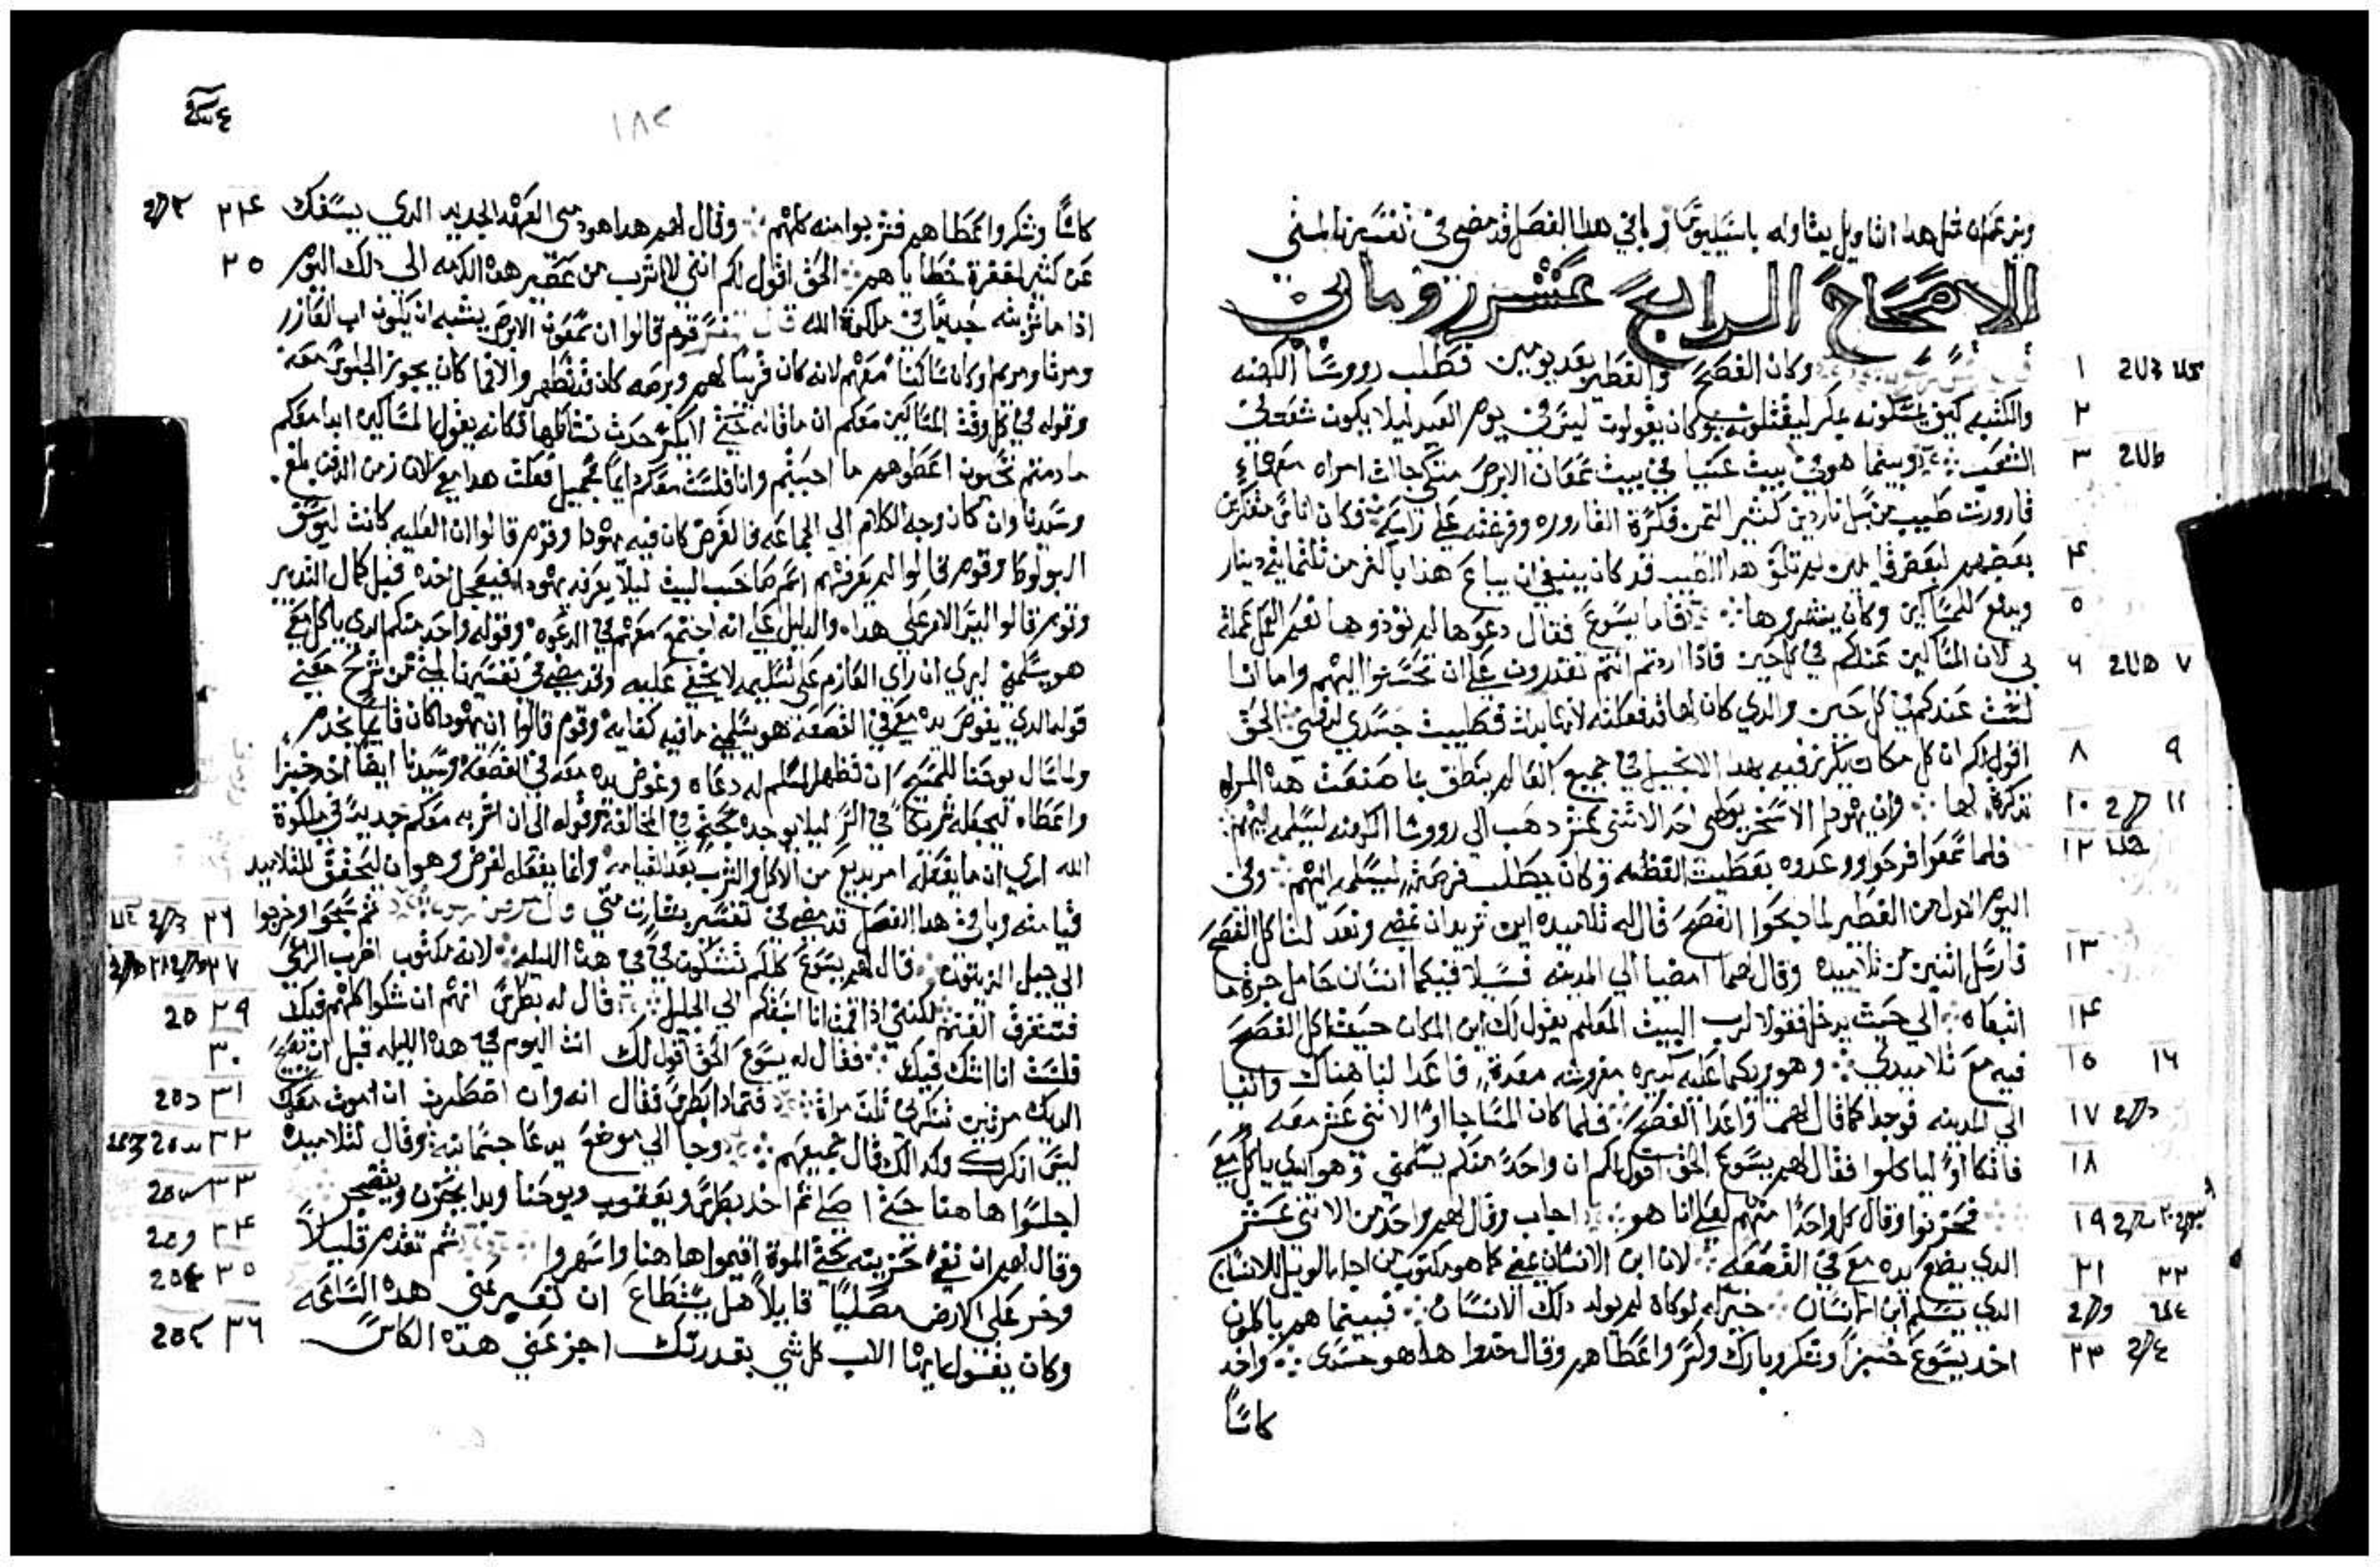 ومن عمان قبل هذا التاويل يتاوله باسيليوس وباقي هذا الفصل قد مضى في تفسيرنا لمتى
الاصحاح الرابع عشر
١ وكان الفصح والفطير بعد يومين فطلب رووسا الكهنه
٢ والكتبه كيف يمسكونه بمكر ليقتلونه وكانو يقولون ليس في يوم العيد ليلا يكون شغب في
٣ الشعب وبينما هو في بيت عنيا في بيت سمعان الابرص متكي جات امراه معها
قارورت طيب من سنبل ناردين كثير الثمن فكسرة القاروره وفرغته علي راسه فكان اناس متفكرين
٤ بعضهم لبعض قايلين لم تلف هذا الطيب قد كان ينبغي ان يباع هذا باكثر من ثلثمايه دينار
٥ ويدفع للمساكين وكانو ينتهروها فاما يسوع فقال دعوها لم توذوها نعم العمل عملته
٦ ٧ بي لان المساكين عندكم في كل حين فاذا اردتم انتم تقدرون علي ان تحسنوا اليهم واما انا
لست عندكم في كل حين والدي كان لها قد فعلته لانها بدت فطيبت جسدي لدفني الحق
٨ ٩ اقول لكم ان كل مكان يكرز فيه بهذا الانجيل في جميع العالم ينطق بما صنعت هذه المراه
١٠ ١١ تذكرة لها وان يهودا الاسخريوطي احد الاثني عشر دهب الي رووسا الكهنه ليسلمه اليهم
١٢ فلما سمعوا فرحوا ووعدوه بعطيت الفضه وكان يطلب فرصة ليسلمه اليهم وفي
اليوم الاول من الفطير لما دبحوا الفصح قال له تلاميده اين تريد ان نمضي ونعد لتاكل الفصح
١٣ فارسل اثنين من تلاميده وقال لهما امضيا الي المدينه فسيلاقيكما انسان حامل جرة ما
١٤ اتبعاه الي حيث يدخل فقولا لرب البيت المعلم يقول لك اين المكان حيث اكل الفصح
١٥ ١٦ فيه مع تلاميدي وهو يريكما عليه كبيره مفروشه معدة فاعدا لنا هناك واتيا
١٧ الي المدينه فوجدا كما قال لهما واعدا الفصح فلما كان المسا جا والاثني عشر معه
١٨ فاتكاو ليا كلوا فقال لهم يسوع الحق اقول لكم ان واحد منكم يسلمني وهو الدي ياكل معي
١٩ ٢٠ فحزنوا وقال كل واحدا منهم لعلي انا هو اجاب وقال لهم واحد من الاثني عشر
٢١ ٢٢ الدي يضع يده معي في القصعه لان ابن الانسان يمضي كما هو مكتوب من اجله الويل للانسان
الدي يسلم ابن الانسان خير له لو كان لم يولد دلك الانسان فبينما هم ياكلون
٢٣ اخد يسوع خبزا وشكر وبارك وكسر واعطاهم وقال خدوا هذا هو جسدي واخد
كاسا
١٨٢
٢٤ كاسا وشكر واعطاهم فشربوا منه كلهم وقال لهم هذا هو دمي العهد الجديد الدي يسفك
٢٥ عن كثير لمغفرة خطاياهم الحق اقول لكم انني لا اشرب من عصير هذه الكرمه الى دلك اليوم
اذا ما شربته جديدا في ملكوة الله قوم قالوا ان سمعون الابرص يشبه ان يكون اب العازر
ومرتا ومريم وكان ساكنا معهم لانه كان قريبا لهم وبرصه كان قد تطهر والا فما كان يجوز الجلوس معه
وقوله في كل وقت المساكين معكم ما قاله حتي لا يكثر حدث فكانه يقول المساكين ابدا معكم
مادمتم تحيون اعطوهم ما احببتم وانا فلست معكم دايما فعلت هذا مع لان زمن الدفن بلغ
وسيدنا وان كان وجه الكلام الي الجماعه فالغرض كان فيه يهودا وقوم قالوا ان العليه كانت ليوسف
وقوم قالوا لم يعرفهم اسم صاحب البيت ليلا يعرفه يهودا فيعجل اخده قبل كمال التدبير
وقوم قالوا الامر علي هذا والدليل علي انه اجتمع معهم في الدعوه وقوله واحد منكم الدي ياكل معي
هو يسلمني ليري ان راي العازم على تسليمه لا يخفي عليه وقد مضى في تفسيرنا لمتي من شرح
قوله الدي يغوص يده معي في القصعه هو يسلمني ما فيه كفايه وقوم قالوا ان يهودا كان قايما يخدم
ولما سال يوحنا للمسيح ان تظهر المسلم له دعاه وغوص يده معه في القصعه وسيدنا ايضا اخد خبزا
واعطاه ليجعله شريكا في السر ليلا يوجد حجة في المخالفة وقوله الى ان اشربه معكم جديدا في ملكوة
الله اري ان ما يفعله امر بديع من الاكل والشرب بعد القيامه وانما يفعله لغرض وهو ان ليتحقق للتلاميد
٢٦ قيامته وباقي هذا الفصل قد مضى في تفسير بشارت متي ثم سبحوا وخرجوا
٢٧ ٢٨ الي جبل الزيتون قال لهم يسوع كلكم تشكون في في هذه الليله لانه مكتوب اضرب الراعي
٢٩ فتتفرق الغنم لكنني اذا قمت انا اسبقكم الي الجليل قال له بطرس انهم ان شكوا كلهم فيك
٣٠ فلست انا اشك فيك فقال له يسوع الحق اقول لك انت اليوم في هذه الليله قبل ان يصيح
٣١ الديك مرتين تنكرني ثلت مرات فتمادا بطرس فقال انه وان اضطررت ان اموت معك
٣٢ ليس انكرك وكدالك قال جميعهم وجا الي موضع يدعا جتسمانيه وقال لتلاميده
٣٣ اجلسوا هاهنا حتي اصلي ثم اخد بطرس ويعقوب ويوحنا وبدا يحزن ويضجر
٣٤ وقال لهم ان نفسي حزينه حتي الموة اقيموا هاهنا واسهروا ثم تقدم قليلا
٣٥ وخر علي الارض مصليا قايلا هل يستطاع ان تعبر عني هذه الساعه
٣٦ وكان يقول يا ايها الاب كل شي بقدرتك اجز عني هذه الكاس